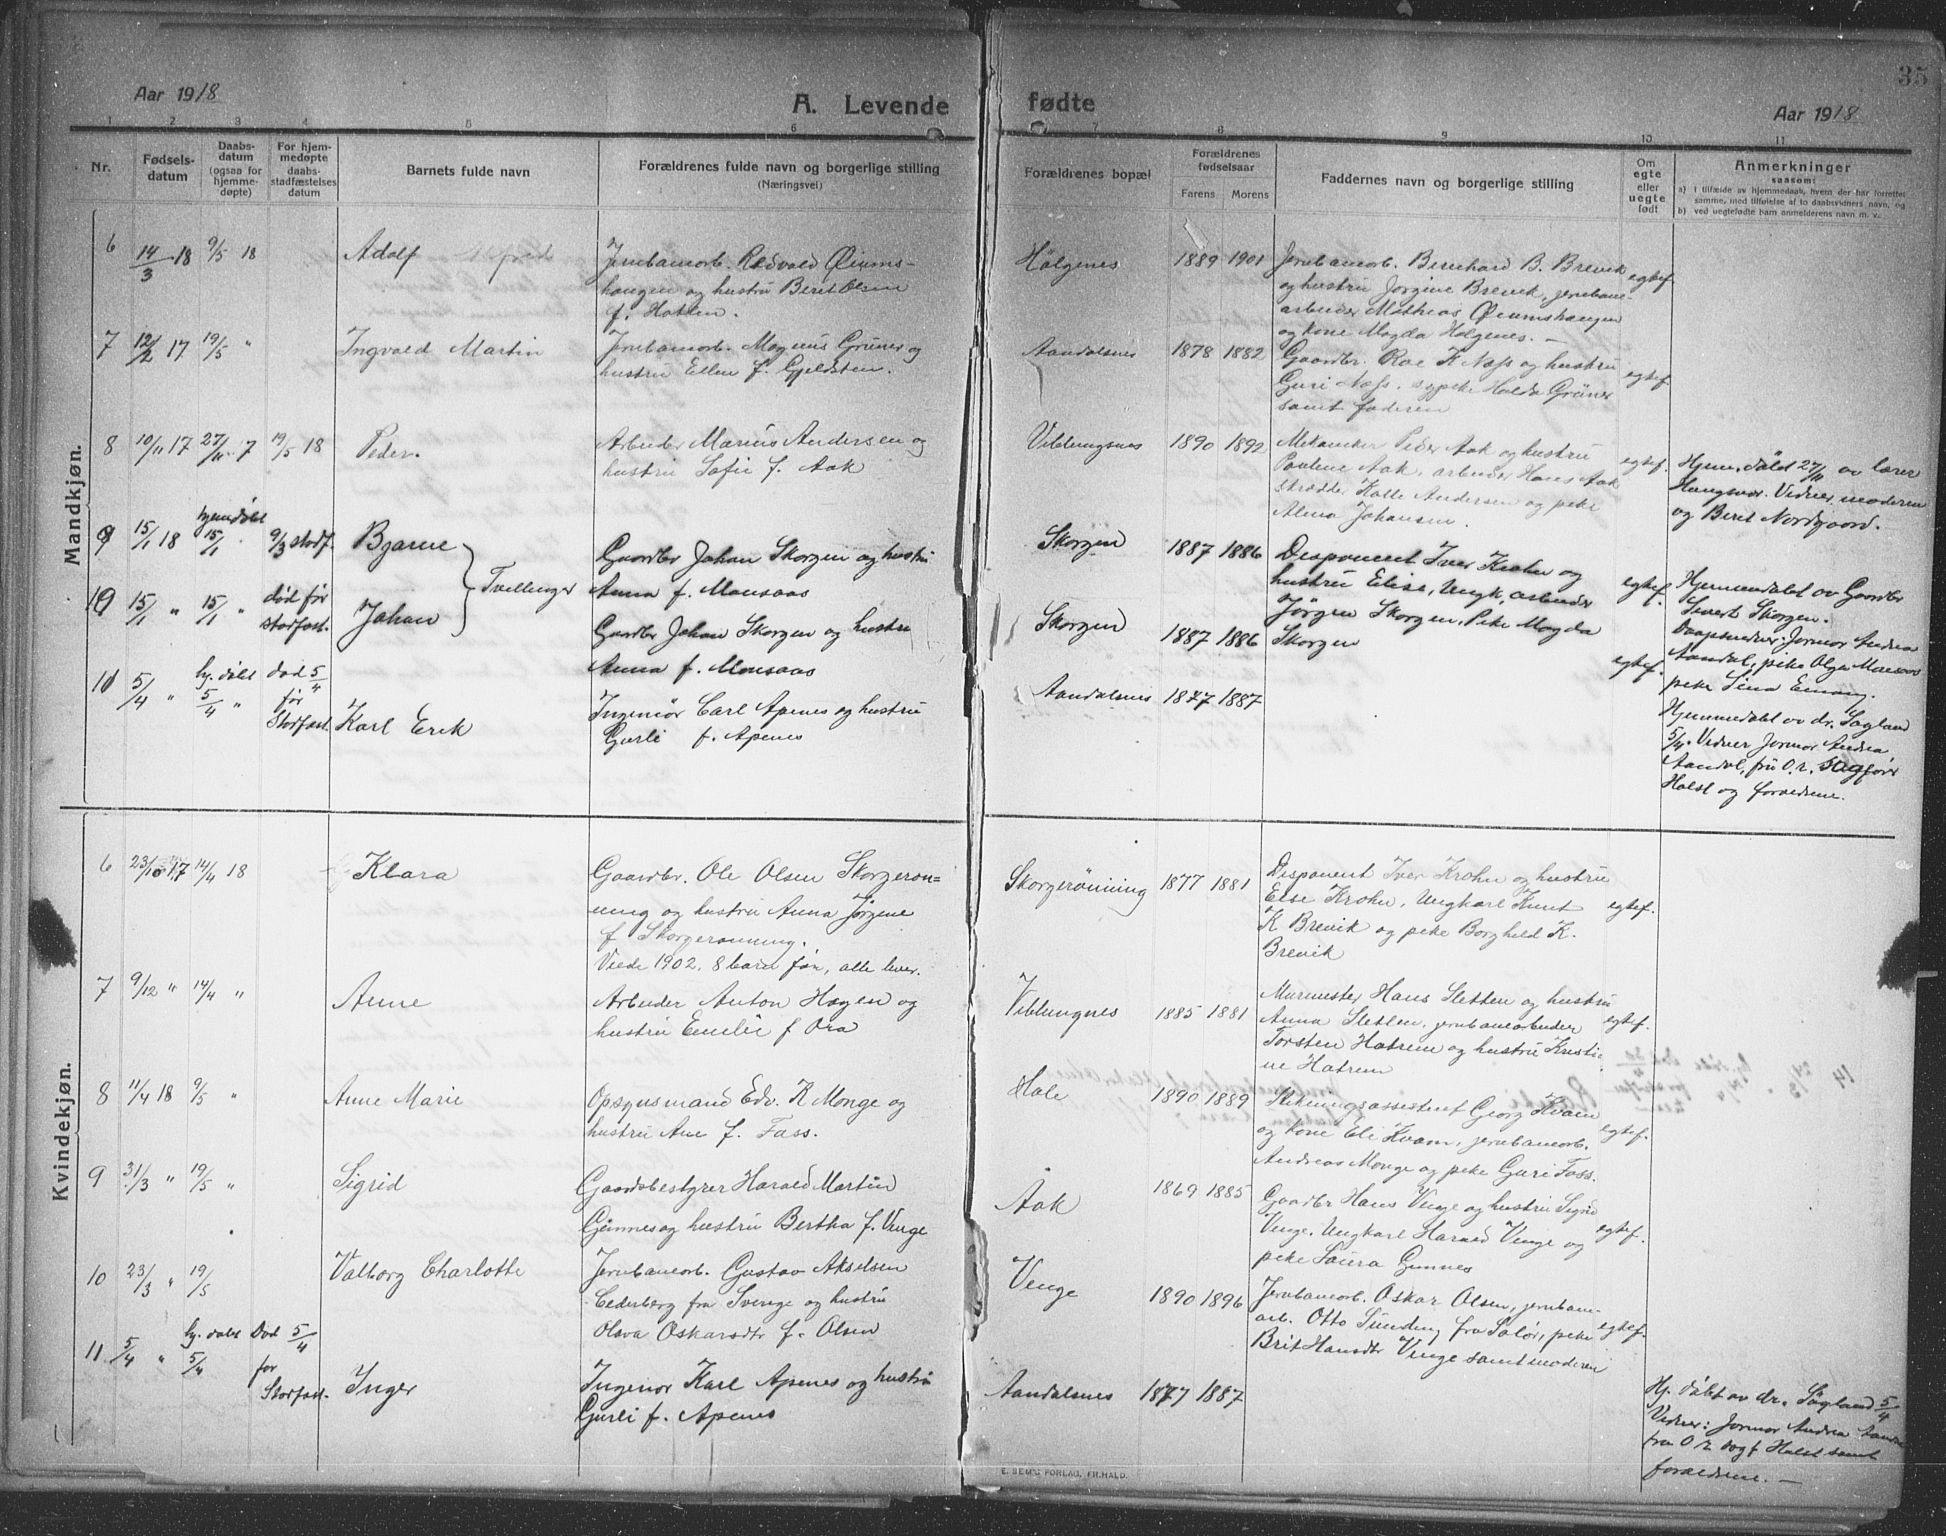 35
Aar 1918
A. Levende
fødte
Aar 1918
1 2 3 4 5 6 7 8 9 10 11
Nr.
Fødsels-
datum
Daabs-
datum
(ogsaa for
hjemme-
døpte)
For hjem-
medøpte
daabs-
stadfæstelses
datum
Barnets fulde navn
Forældrenes fulde navn og borgerlige stilling
(Næringsvei)
Forældrenes bopæl
Forældrenes
fødselsaar
Farens Morens
Faddernes navn og borgerlige stilling
Om
egte
eller
uegte
født
Anmerkninger
saasom:
a) I tilfælde av hjemmedaab, hvem der har forrettet
samme, med tilføielse af to daabsvidners navn, og
b) ved uegtefødte barn anmelderens navn m. v.
Mandkjøn.
6 14/3 18 9/5 18 Adolf
Jernbanearb. Redvald Øiums-
haugen og hustru Berit Olsen
f. Hatten.
Hølgenes 1889 1901
Jernbanearb. Bernhard B. Brevik
og hustru Jørgine Brevik, jernbane-
arbeider Mathias Øiumshaugen
og kone Magda Hølgenes. –
egtef.
7 12/2 17 19/5 " Ingvald Martin
Jernbanearb. Magnus Grüner og
hustru Ellen f. Gjeldsten.
Aandalsnes 1878 1882
Gaardbr. Roe K Næss og hustru
Guri Næss, sypike Halda Grüner
samt faderen
egtef.
8 10/11 17 27/11 17 19/5 18 Peder.
Arbeider Marius Andersen og
hustru Sofie f. Aak
Veblungsnes 1890 1892
Mekaniker Peder Aak og hustru
Pauline Aak, arbeider Hans Aak
skrædder Kalle Andersen og pike
Alma Johansen.
egtef.
Hjem. døbt 27/11 av lærer
Haugsvær. Vidner moderen
og Berit Nordgaard.
9 15/1 18 hjemdøbt 15/1 9/3 stadf. Bjarne
Tvillinger
Gaardbr Johan Skorgen og hustru
Anna f. Monsaas
Skorgen 1887 1886
Disponent Iver Krohn og
hustru Elise, Ungk, arbeider
Jørgen Skorgen, Pike Magda
Skorgen
egtef.
Hjemmedøbt av Gaardbr
Sivert Skorgen.
Daapsvidner: Jormor Andrea
Aandal, pike Olga Monsaas
pike Sina Enang.
10 15/1 " 15/1 " død før stadfast. Johan
Gaardbr Johan Skorgen og hustru
Anna f. Monsaas
Skorgen 1887 1886
egtef.
11 5/4 " hj. døbt 5/4 " død 5/4 før Stadfast. Karl Erik
Ingeniør Carl Apenes og hustru
Gurli f. Apenes
Aandalsnes 1877 1887
Hjemmedøbt av dr. Søgland
5/4. Vidner Jormor Andrea
Aandal, fru O.r. sagfører
Holst og forældrene.
Kvindekjøn.
6 23/10 17 14/4 18 Klara
Gaardbr. Ole Olsen Skorgerøn=
ning og hustru Anna Jørgine
f Skorgerønning.
Viede 1902, 8 barn før, alle lever.
Skorgerønning 1877 1881
Disponent Iver Krohn og hustru
Else Krohn, Ungkarl Knut
K Brevik og pike Borghild K.
Brevik
egtef.
7 9/12 " 14/4 " Anne
Arbeider Anton Hagen og
hustru Emelie f Ora
Veblungnes 1885 1881
Murmester Hans Sletten og hustru
Anna Sletten, jernbanearbeider
Torsten Hatrem og hustru Kristi-
ne Hatrem
egtef.
8 11/4 18 9/5 " Anne Marie
Opsynsmand Edv. K Monge og
hustru Ane f. Fass.
Hole 1890 1889
Stikningsassistent Georg Kvam
og kone Eli Kvam, jernbanearb.
Andreas Monge og pike Guri Fass.
egtef.
9 31/3 " 19/5 " Sigrid
Gaardsbestyrer Harald Martin
Gunnes og hustru Bertha f. Venge
Aak 1869 1885
Gaardbr Hans Venge og hustru Sigrid
Venge, Ungkarl Harald Venge og
pike Laura Gunnes
egtef.
10 23/3 " 19/5 Valborg Charlotte
Jernbanearb. Gustav Akselsen
Cederberg fra Sverige og hustru
Olava Oskarsdtr f. Olsen
Venge 1890 1896
Jernbanearb. Oskar Olsen, jernbane-
arb. Otto Sunding fra Solør, pike
Brit Hansdtr Venge samt moderen
egtef.
11. 5/4 " hj. døbt 5/4 Død 5/4 før Stadfast. Inger
Ingeniør Karl Apenes og hustru
Gurli f. Apenes
Aandalsnes 1877 1887
Hj. døbt av dr. Søgland 5/4
Vidner: Jormor Andrea Aandal
fru O.r. sagf Holst samt
forældrene. –
E. SEM'S FORLAG, FR.HALD.